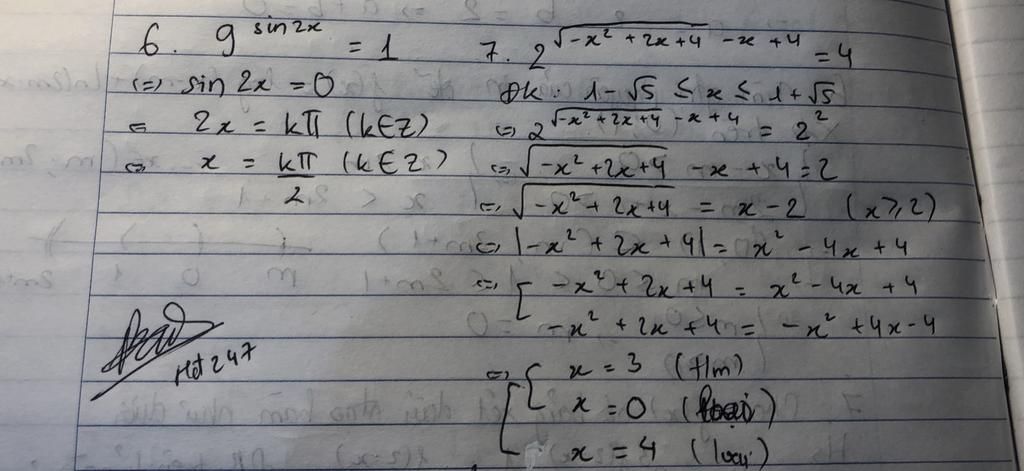 6. 9^{sin2x} = 1
⇔ sin 2x = 0
⇔ 2x = kπ (k∈Z)
⇔ x = kπ/2 (k∈Z)
Hdt 247
7. 2^{√(-x² + 2x + 4) - x + 4} = 4
ĐK: 1 - √5 ≤ x ≤ 1 + √5
⇔ 2^{√(-x² + 2x + 4) - x + 4} = 2²
⇔ √(-x² + 2x + 4) - x + 4 = 2
⇔ √(-x² + 2x + 4) = x - 2 (x ≥ 2)
⇔ |-x² + 2x + 4| = x² - 4x + 4
⇔ [ -x² + 2x + 4 = x² - 4x + 4
-x² + 2x + 4 = -x² + 4x - 4
⇔ [ { x = 3 (t/m)
x = 0 (loại)
x = 4 (loại)